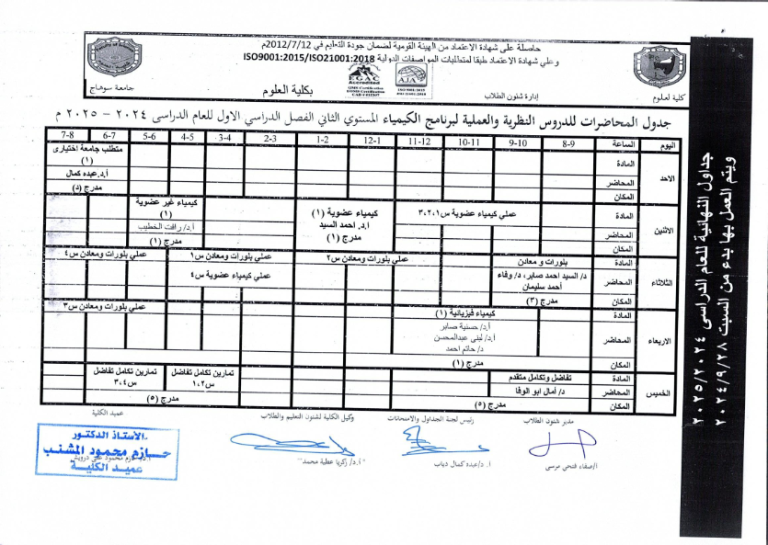 حاصلة على شهادة الاعتماد من الهيئة القومية لضمان جودة التعليم في 2012/7/12م
وعلى شهادة الاعتماد طبقا لمتطلبات المواصفات الدولية ISO9001:2015/ISO21001:2018
كلية العلوم
إدارة شئون الطلاب
EGAC
AJA
بكلية العلوم
جامعة سوهاج
جدول المحاضرات للدروس النظرية والعملية لبرنامج الكيمياء المستوي الثاني الفصل الدراسي الاول للعام الدراسى ٢٠٢٤ – ٢٠٢٥ م
اليوم الساعة 8-9 9-10 10-11 11-12 12-1 1-2 2-3 3-4 4-5 5-6 6-7 7-8
الاحد
المادة متطلب جامعة اختيارى (١)
المحاضر أ.د.عبده كمال
المكان مدرج (٥)
الاثنين
المادة عملي كيمياء عضوية س٣،٢،١ كيمياء عضوية (١) كيمياء غير عضوية (١)
المحاضر أ.د. احمد السيد أ.د/ رافت الخطيب
المكان مدرج (١) مدرج (١)
الثلاثاء
المادة بلورات و معادن عملي بلورات ومعادن س٢ عملي بلورات ومعادن س١ عملي بلورات ومعادن س٤
المحاضر د/ السيد احمد صابر، د/ وفاء احمد سليمان عملي كيمياء عضوية س٤
المكان مدرج (٢)
الاربعاء
المادة كيمياء فيزيائية (١) عملي بلورات ومعادن س٣
المحاضر أ.د/ حسنية صابر
أ.د/ لبنى عبدالمحسن
د/ حاتم احمد
المكان مدرج (١)
الخميس
المادة تفاضل وتكامل متقدم تمارين تكامل تفاضل س١،٢ تمارين تكامل تفاضل س٣،٤
المحاضر د/ أمال ابو الوفا
المكان مدرج (٥) مدرج (٥)
مدير شئون الطلاب
رئيس لجنة الجداول والامتحانات
وكيل الكلية لشئون التعليم والطلاب
عميد الكلية
ا/صفاء فتحي مرسى
ا.د/عبده كمال دياب
ا.د/ زكريا عطية محمد
الأستاذ الدكتور
حازم محمود المشنب
عميد الكلية
جداول النهائية للعام الدراسى ٢٠٢٥/٢٠٢٤
ويتم العمل بها بدء من السبت ٢٠٢٤/٩/٢٨